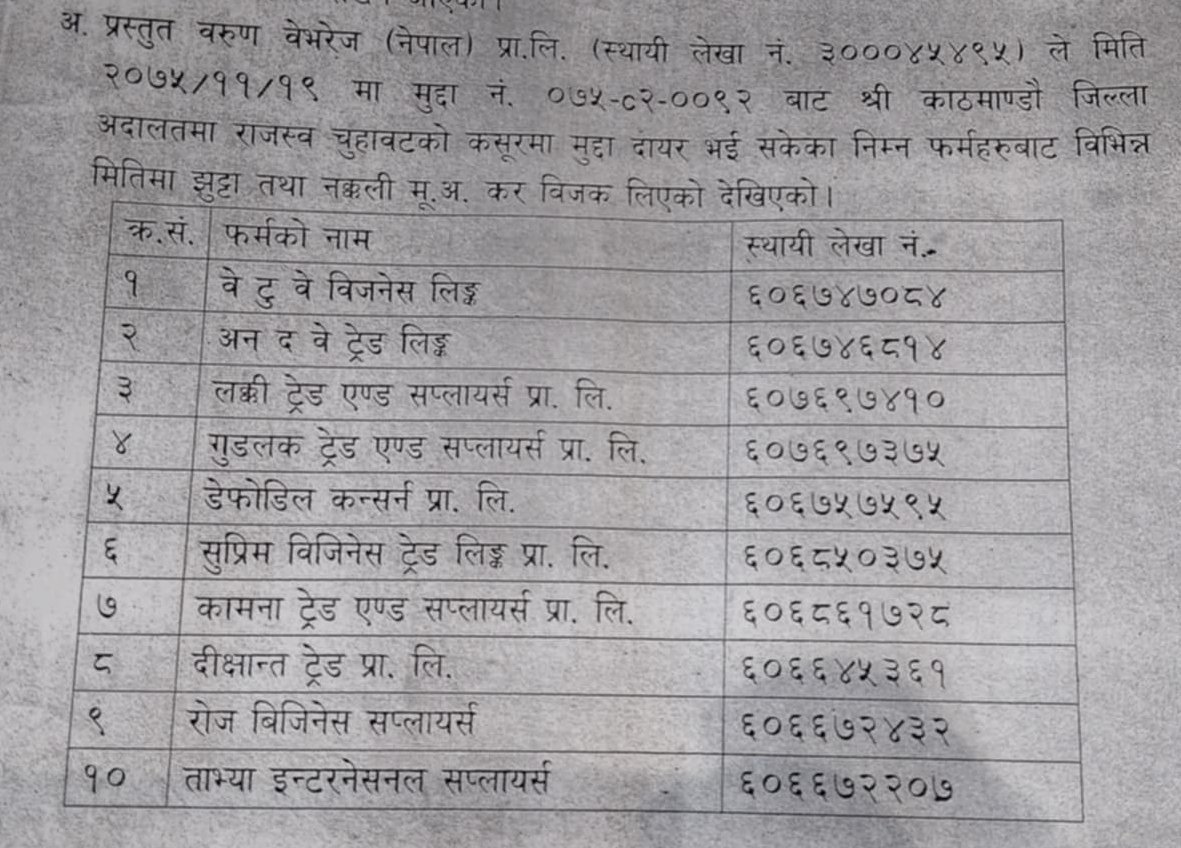 अ. प्रस्तुत वरुण वेभरेज (नेपाल) प्रा.लि. (स्थायी लेखा नं. ३०००४५४९५) ले मिति
२०७५/११/१९ मा मुद्दा नं. ०७५-८२-००९२ बाट श्री काठमाण्डौ जिल्ला
अदालतमा राजस्व चुहावटको कसूरमा मुद्दा दायर भई सकेका निम्न फर्महरुबाट विभिन्न
मितिमा झुट्टा तथा नक्कली मू.अ. कर विजक लिएको देखिएको।
क्र.सं. फर्मको नाम स्थायी लेखा नं.
१ वे टु वे विजनेस लिङ्क ६०६७४७०८४
२ अन द वे ट्रेड लिङ्क ६०६७४६८१४
३ लक्की ट्रेड एण्ड सप्लायर्स प्रा. लि. ६०७६९७४१०
४ गुडलक ट्रेड एण्ड सप्लायर्स प्रा. लि. ६०७६९७३७५
५ डेफोडिल कन्सर्न प्रा. लि. ६०६७५७५९५
६ सुप्रिम विजिनेस ट्रेड लिङ्क प्रा. लि. ६०६८५०३७५
७ कामना ट्रेड एण्ड सप्लायर्स प्रा. लि. ६०६८६१७२८
८ दीक्षान्त ट्रेड प्रा. लि. ६०६६४५३६१
९ रोज बिजिनेस सप्लायर्स ६०६६७२४३२
१० ताभ्या इन्टरनेसनल सप्लायर्स ६०६६७२२०७